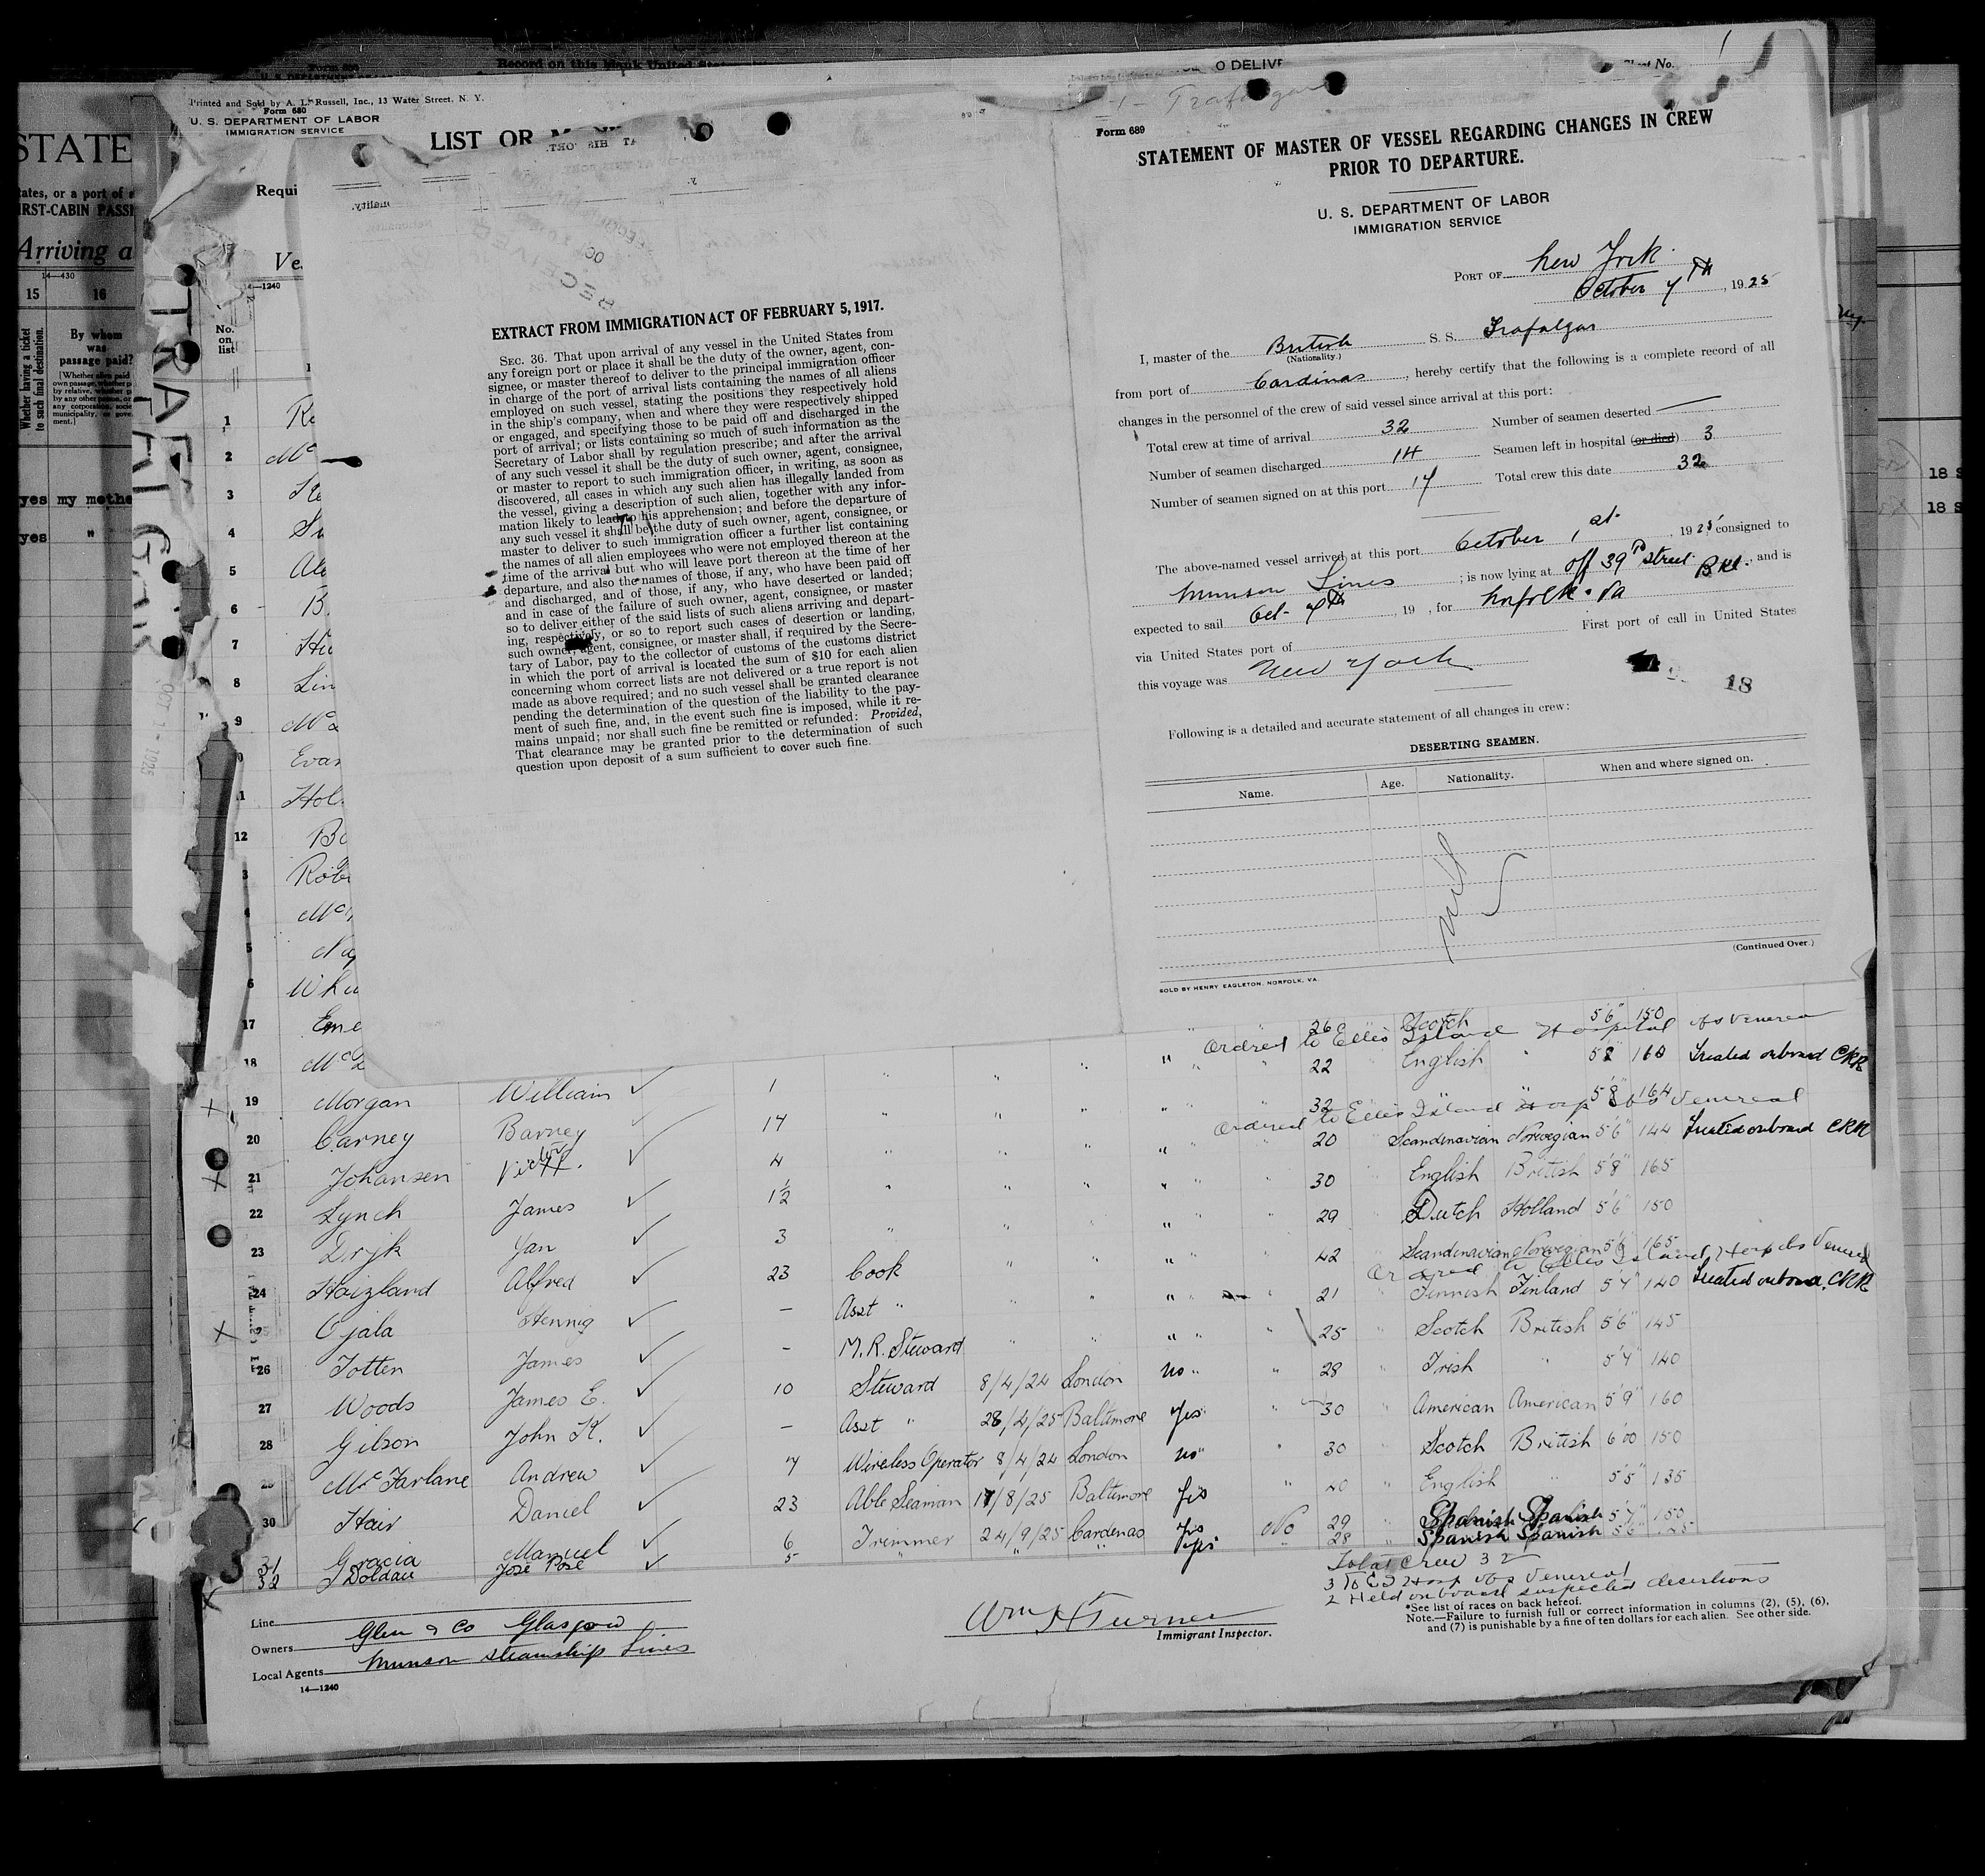 Record on this blank United States
O DELIVE
Sheet No.
Printed and Sold by A. L. Russell, Inc., 13 Water Street, N. Y.
Form 680
U. S. DEPARTMENT OF LABOR
IMMIGRATION SERVICE
LIST OR
Requi
Ves
14—1240
No. on list
STATE
ates, or a port of
IRST-CABIN PASS
Arriving a
14—430
15 16
Whether having a ticket to such final destination.
By whom was passage paid?
yes my mothe
yes "
TRAFALGAR
OCT 1 - 1925
EXTRACT FROM IMMIGRATION ACT OF FEBRUARY 5, 1917.
SEC. 36. That upon arrival of any vessel in the United States from
any foreign port or place it shall be the duty of the owner, agent, con-
signee, or master thereof to deliver to the principal immigration officer
in charge of the port of arrival lists containing the names of all aliens
employed on such vessel, stating the positions they respectively hold
in the ship's company, when and where they were respectively shipped
or engaged, and specifying those to be paid off and discharged in the
port of arrival; or lists containing so much of such information as the
Secretary of Labor shall by regulation prescribe; and after the arrival
of any such vessel it shall be the duty of such owner, agent, consignee,
or master to report to such immigration officer, in writing, as soon as
discovered, all cases in which any such alien has illegally landed from
the vessel, giving a description of such alien, together with any infor-
mation likely to lead to his apprehension; and before the departure of
any such vessel it shall be the duty of such owner, agent, consignee, or
master to deliver to such immigration officer a further list containing
the names of all alien employees who were not employed thereon at the
time of the arrival but who will leave port thereon at the time of her
departure, and also the names of those, if any, who have been paid off
and discharged, and of those, if any, who have deserted or landed;
and in case of the failure of such owner, agent, consignee, or master
so to deliver either of the said lists of such aliens arriving and depart-
ing, respectively, or so to report such cases of desertion or landing,
such owner, agent, consignee, or master shall, if required by the Secre-
tary of Labor, pay to the collector of customs of the customs district
in which the port of arrival is located the sum of $10 for each alien
concerning whom correct lists are not delivered or a true report is not
made as above required; and no such vessel shall be granted clearance
pending the determination of the question of the liability to the pay-
ment of such fine, and, in the event such fine is imposed, while it re-
mains unpaid; nor shall such fine be remitted or refunded: Provided,
That clearance may be granted prior to the determination of such
question upon deposit of a sum sufficient to cover such fine.
Trafalgar
Form 689
STATEMENT OF MASTER OF VESSEL REGARDING CHANGES IN CREW
PRIOR TO DEPARTURE.
U. S. DEPARTMENT OF LABOR
IMMIGRATION SERVICE
PORT OF New York
October 7th, 1925
I, master of the British S. S. Trafalgar
(Nationality.)
from port of Cardinas, hereby certify that the following is a complete record of all
changes in the personnel of the crew of said vessel since arrival at this port:
Total crew at time of arrival 32 Number of seamen deserted —
Number of seamen discharged 14 Seamen left in hospital (or died) 3
Number of seamen signed on at this port 17 Total crew this date 32
The above-named vessel arrived at this port October 1st, 1925 consigned to
Munson Lines; is now lying at off 39th Street Bkl., and is
expected to sail Oct. 7th, 19 , for Norfolk. Va
via United States port of First port of call in United States
this voyage was New York
18
Following is a detailed and accurate statement of all changes in crew:
DESERTING SEAMEN.
Name. Age. Nationality. When and where signed on.
nil
(Continued Over.)
SOLD BY HENRY EAGLETON, NORFOLK, VA.
17 26 Scotch 5'6" 150
Ordred to Ellis Island Hospital obs Venereal
18 22 English " 5'8" 160 Treated onboard CRR
19 Morgan William 1 32 " 5'8" 164
Ordred to Ellis Island Hosp obs Venereal
20 Carney Barney 17 20 Scandinavian Norwegian 5'6" 144 Treated onboard CRR
21 Johansen Victor 4 30 English British 5'8" 165
22 Lynch James 1½ 29 Dutch Holland 5'6" 150
23 Dryk Jan 3 42 Scandinavian Norwegian 5'6 165
Ordred to Ellis Island Hosp obs Venereal
24 Haizland Alfred 23 Cook 21 Finnish Finland 5'7" 140 Treated onboard CRR
25 Ojala Hennig — Asst " 25 Scotch British 5'6" 145
26 Totten James — M. R. Steward 28 Irish " 5'7" 140
27 Woods James E. 10 Steward 8/4/24 London no 30 American American 5'9" 160
28 Gilson John K. — Asst " 28/4/25 Baltimore Yes 30 Scotch British 6'00 150
29 McFarlane Andrew 7 Wireless Operator 8/4/24 London no 40 English " 5'5" 135
30 Hair Daniel 23 Able Seaman 17/8/25 Baltimore Yes 29 Spanish Spanish 5'7" 150
31 Gracia Manuel 6 Trimmer 24/9/25 Cardenas Yes No 28 Spanish Spanish 5'6"
32 Jose 5 " " " Yes
Total Crew 32
3 To E I Hosp obs Venereal
2 Held onboard suspected desertions
*See list of races on back hereof.
Note.—Failure to furnish full or correct information in columns (2), (5), (6),
and (7) is punishable by a fine of ten dollars for each alien. See other side.
Wm H Turner
Immigrant Inspector.
Line
Owners Glen & Co Glasgow
Local Agents Munson Steamship Lines
14—1240